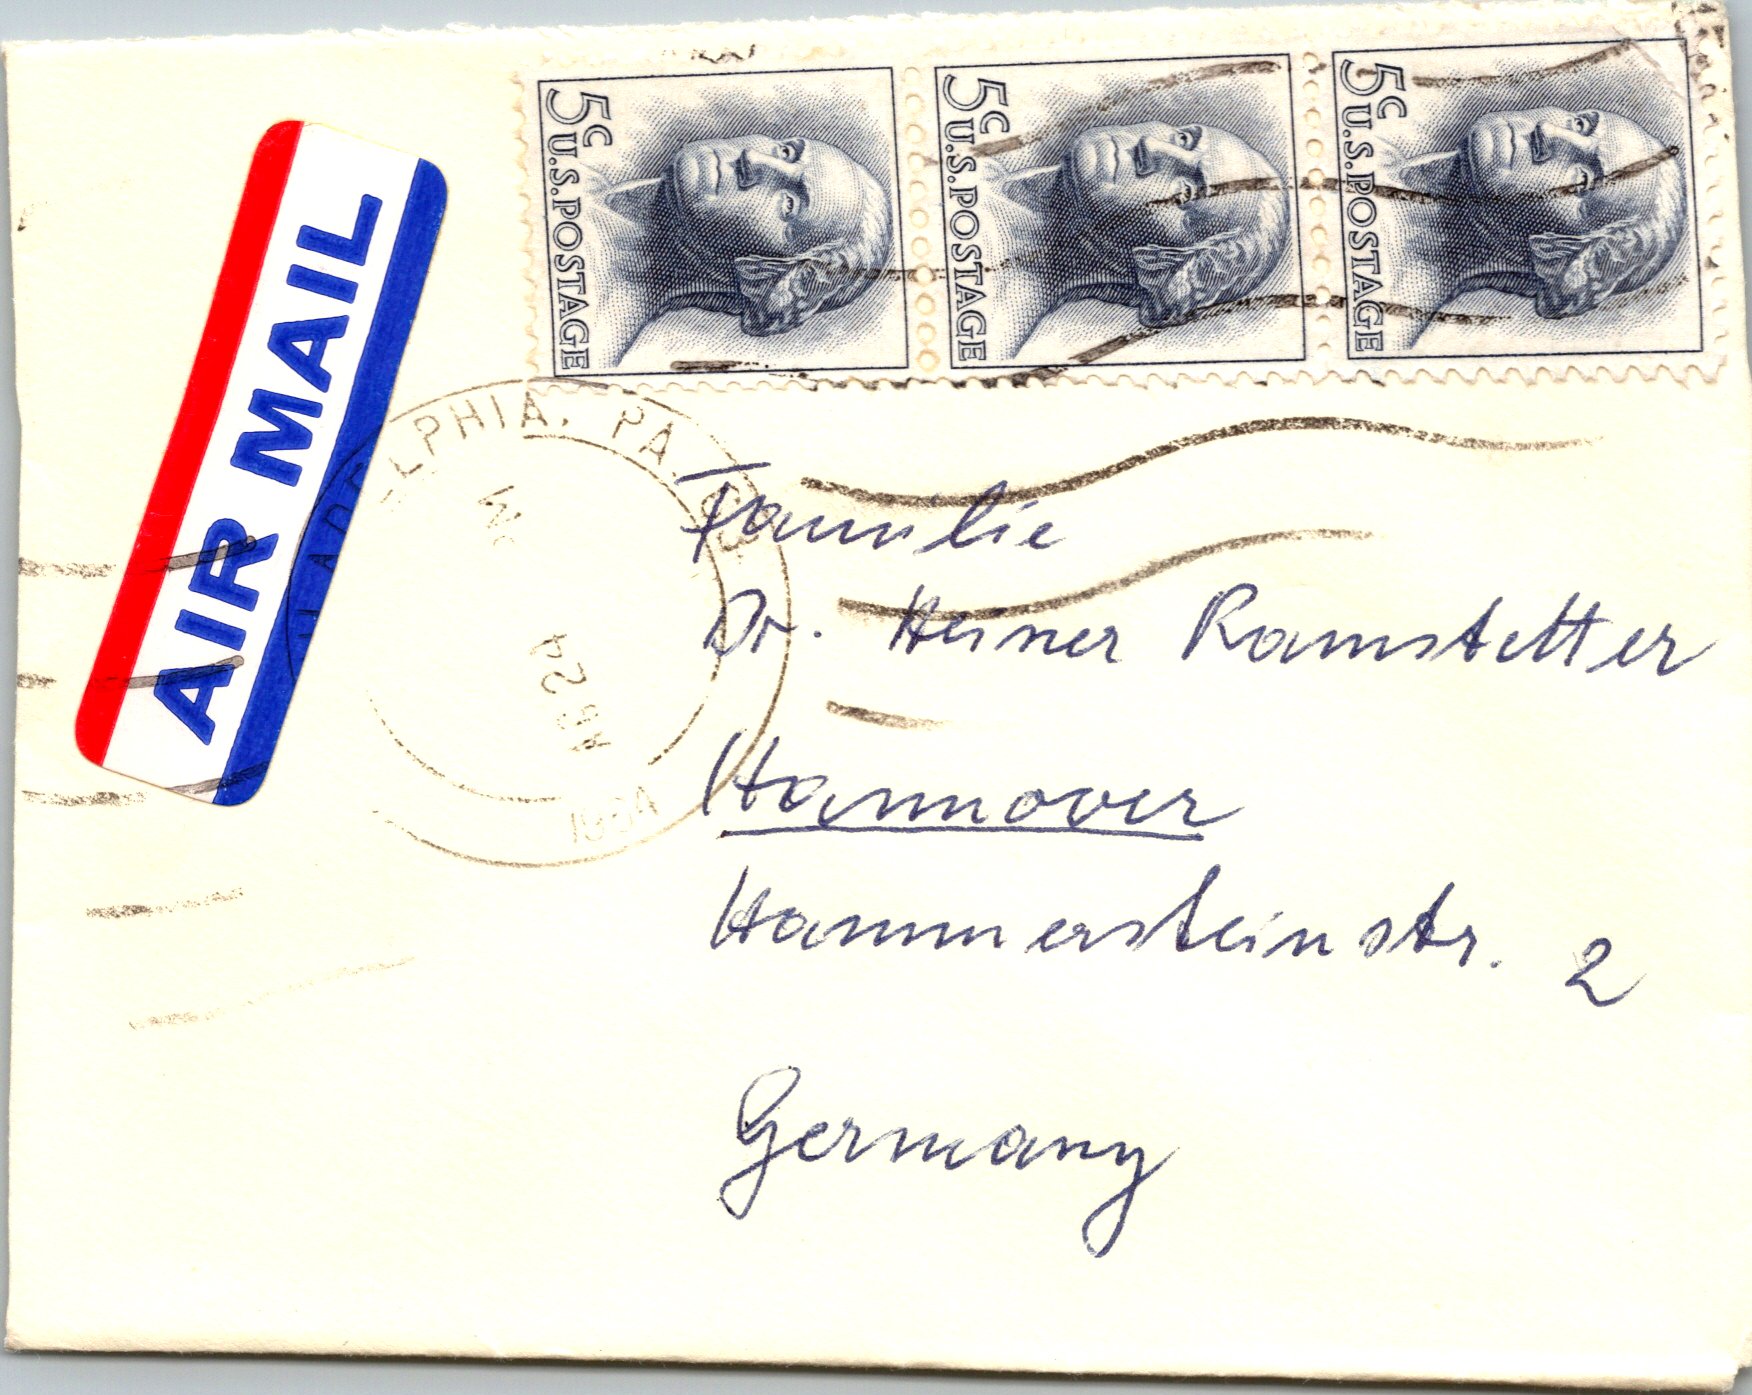 5c U.S. POSTAGE
5c U.S. POSTAGE
5c U.S. POSTAGE
AIR MAIL
PHILADELPHIA, PA.
24
Familie
Dr. Heiner Ramstetter
Hannover
Hammersteinstr. 2
Germany